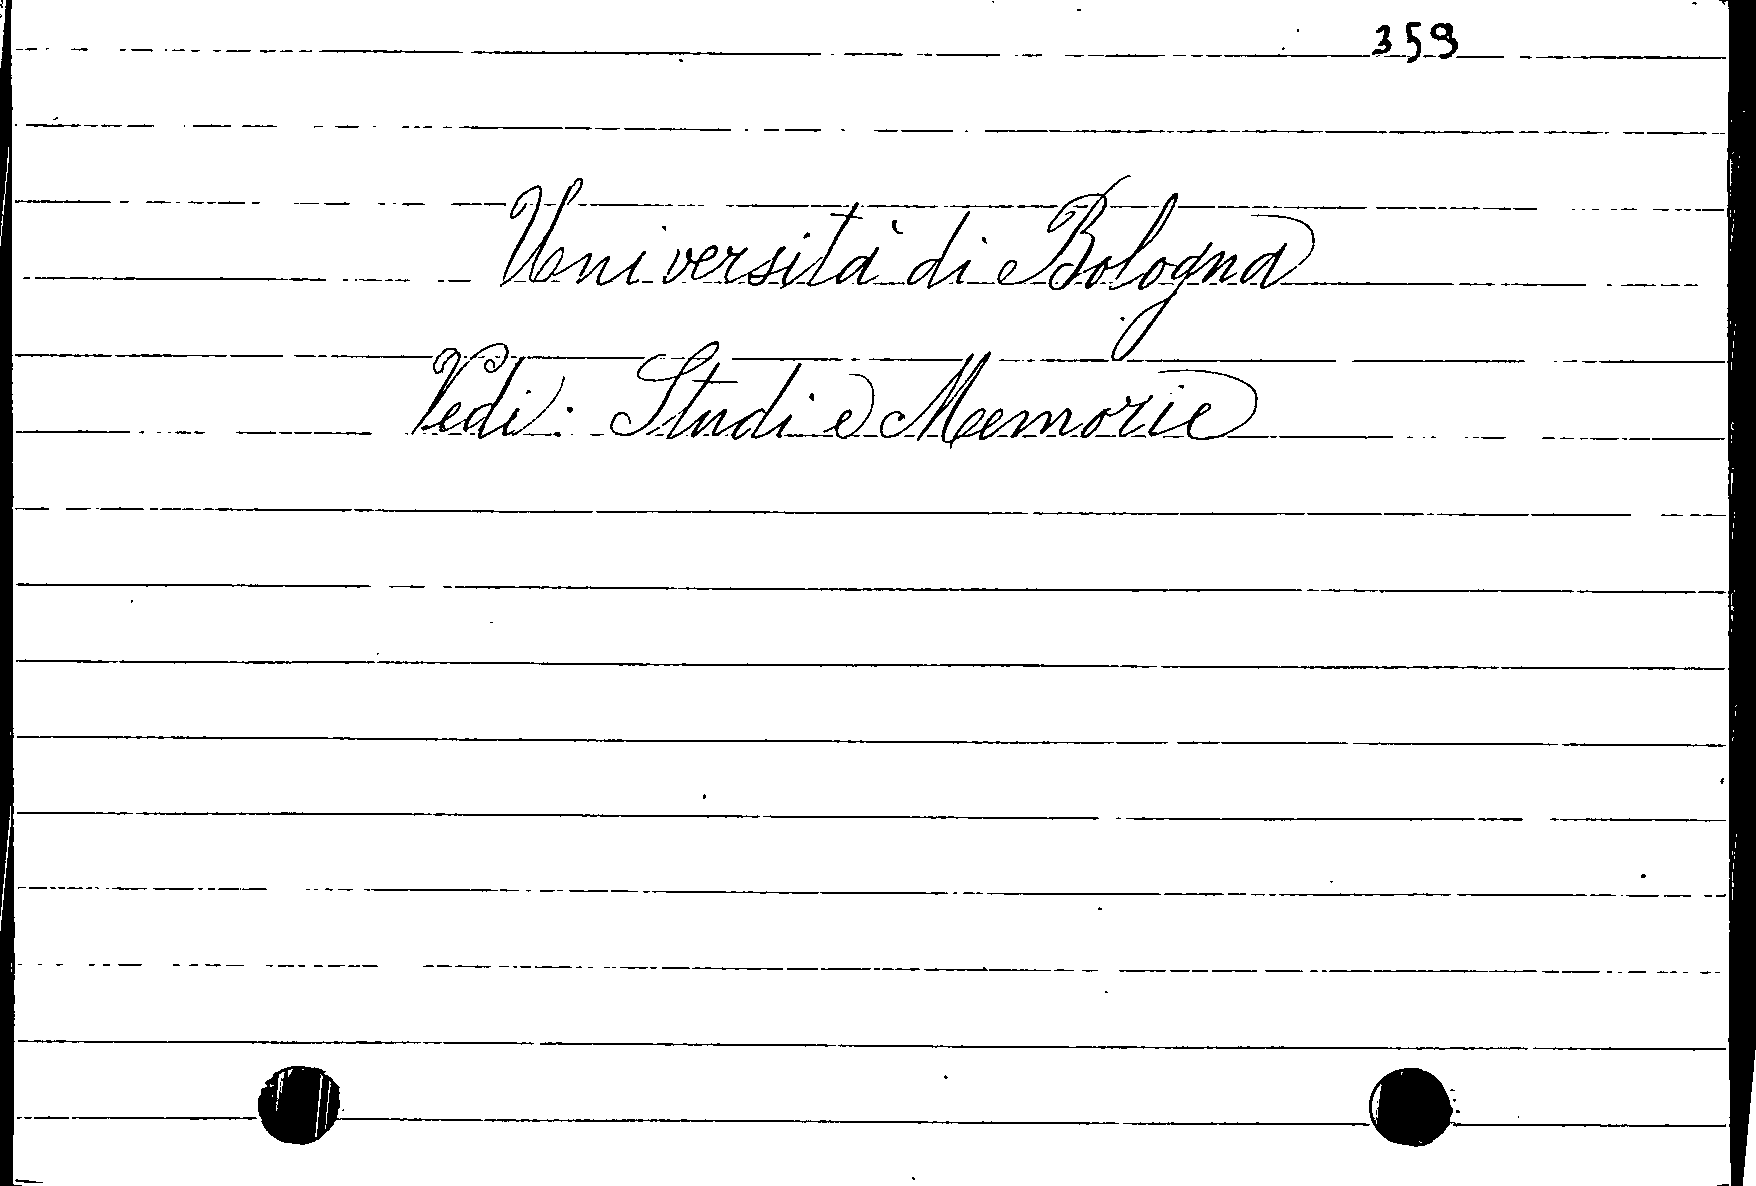 359
Università di Bologna
Vedi: Studi e Memorie